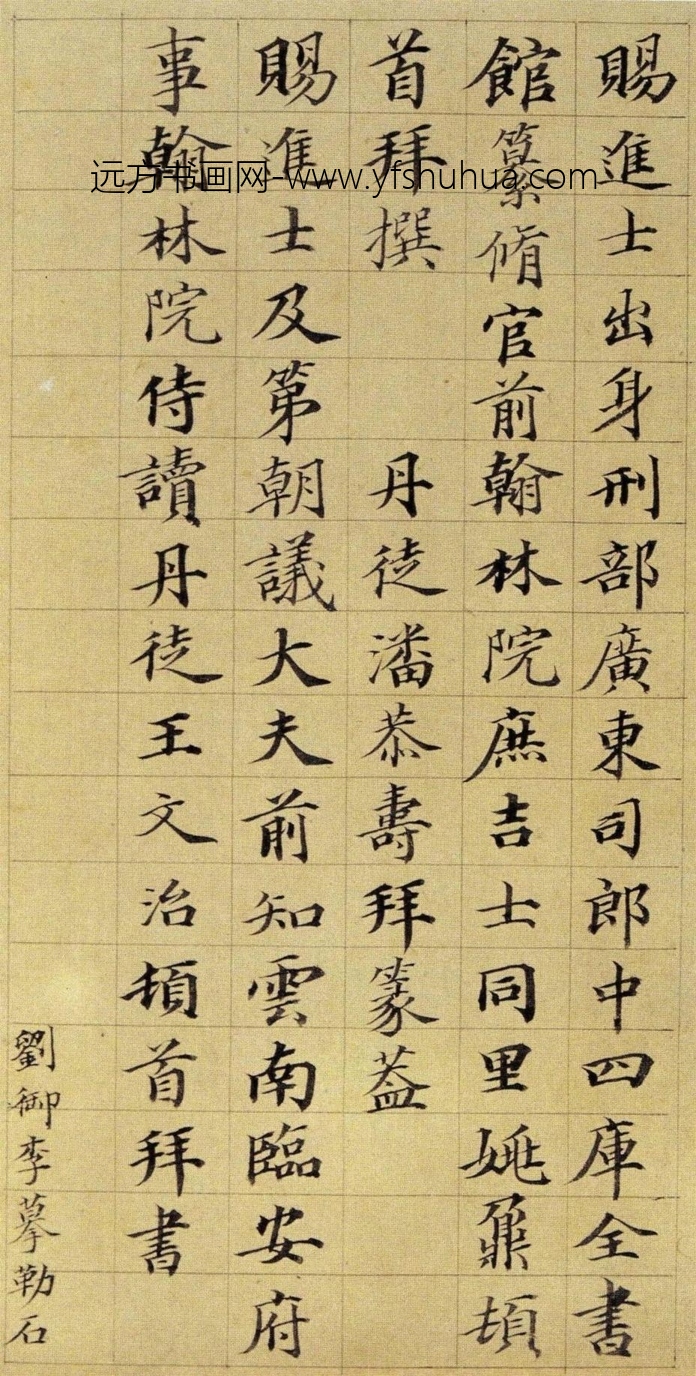 賜進士出身刑部廣東司郎中四庫全書
館纂脩官前翰林院庶吉士同里姚鼐頓
首拜撰 丹徒潘恭壽拜篆葢
賜進士及第朝議大夫前知雲南臨安府
事翰林院侍讀丹徒王文治頓首拜書
劉御李摹勒石
远方书画网-www.yfshuhua.com